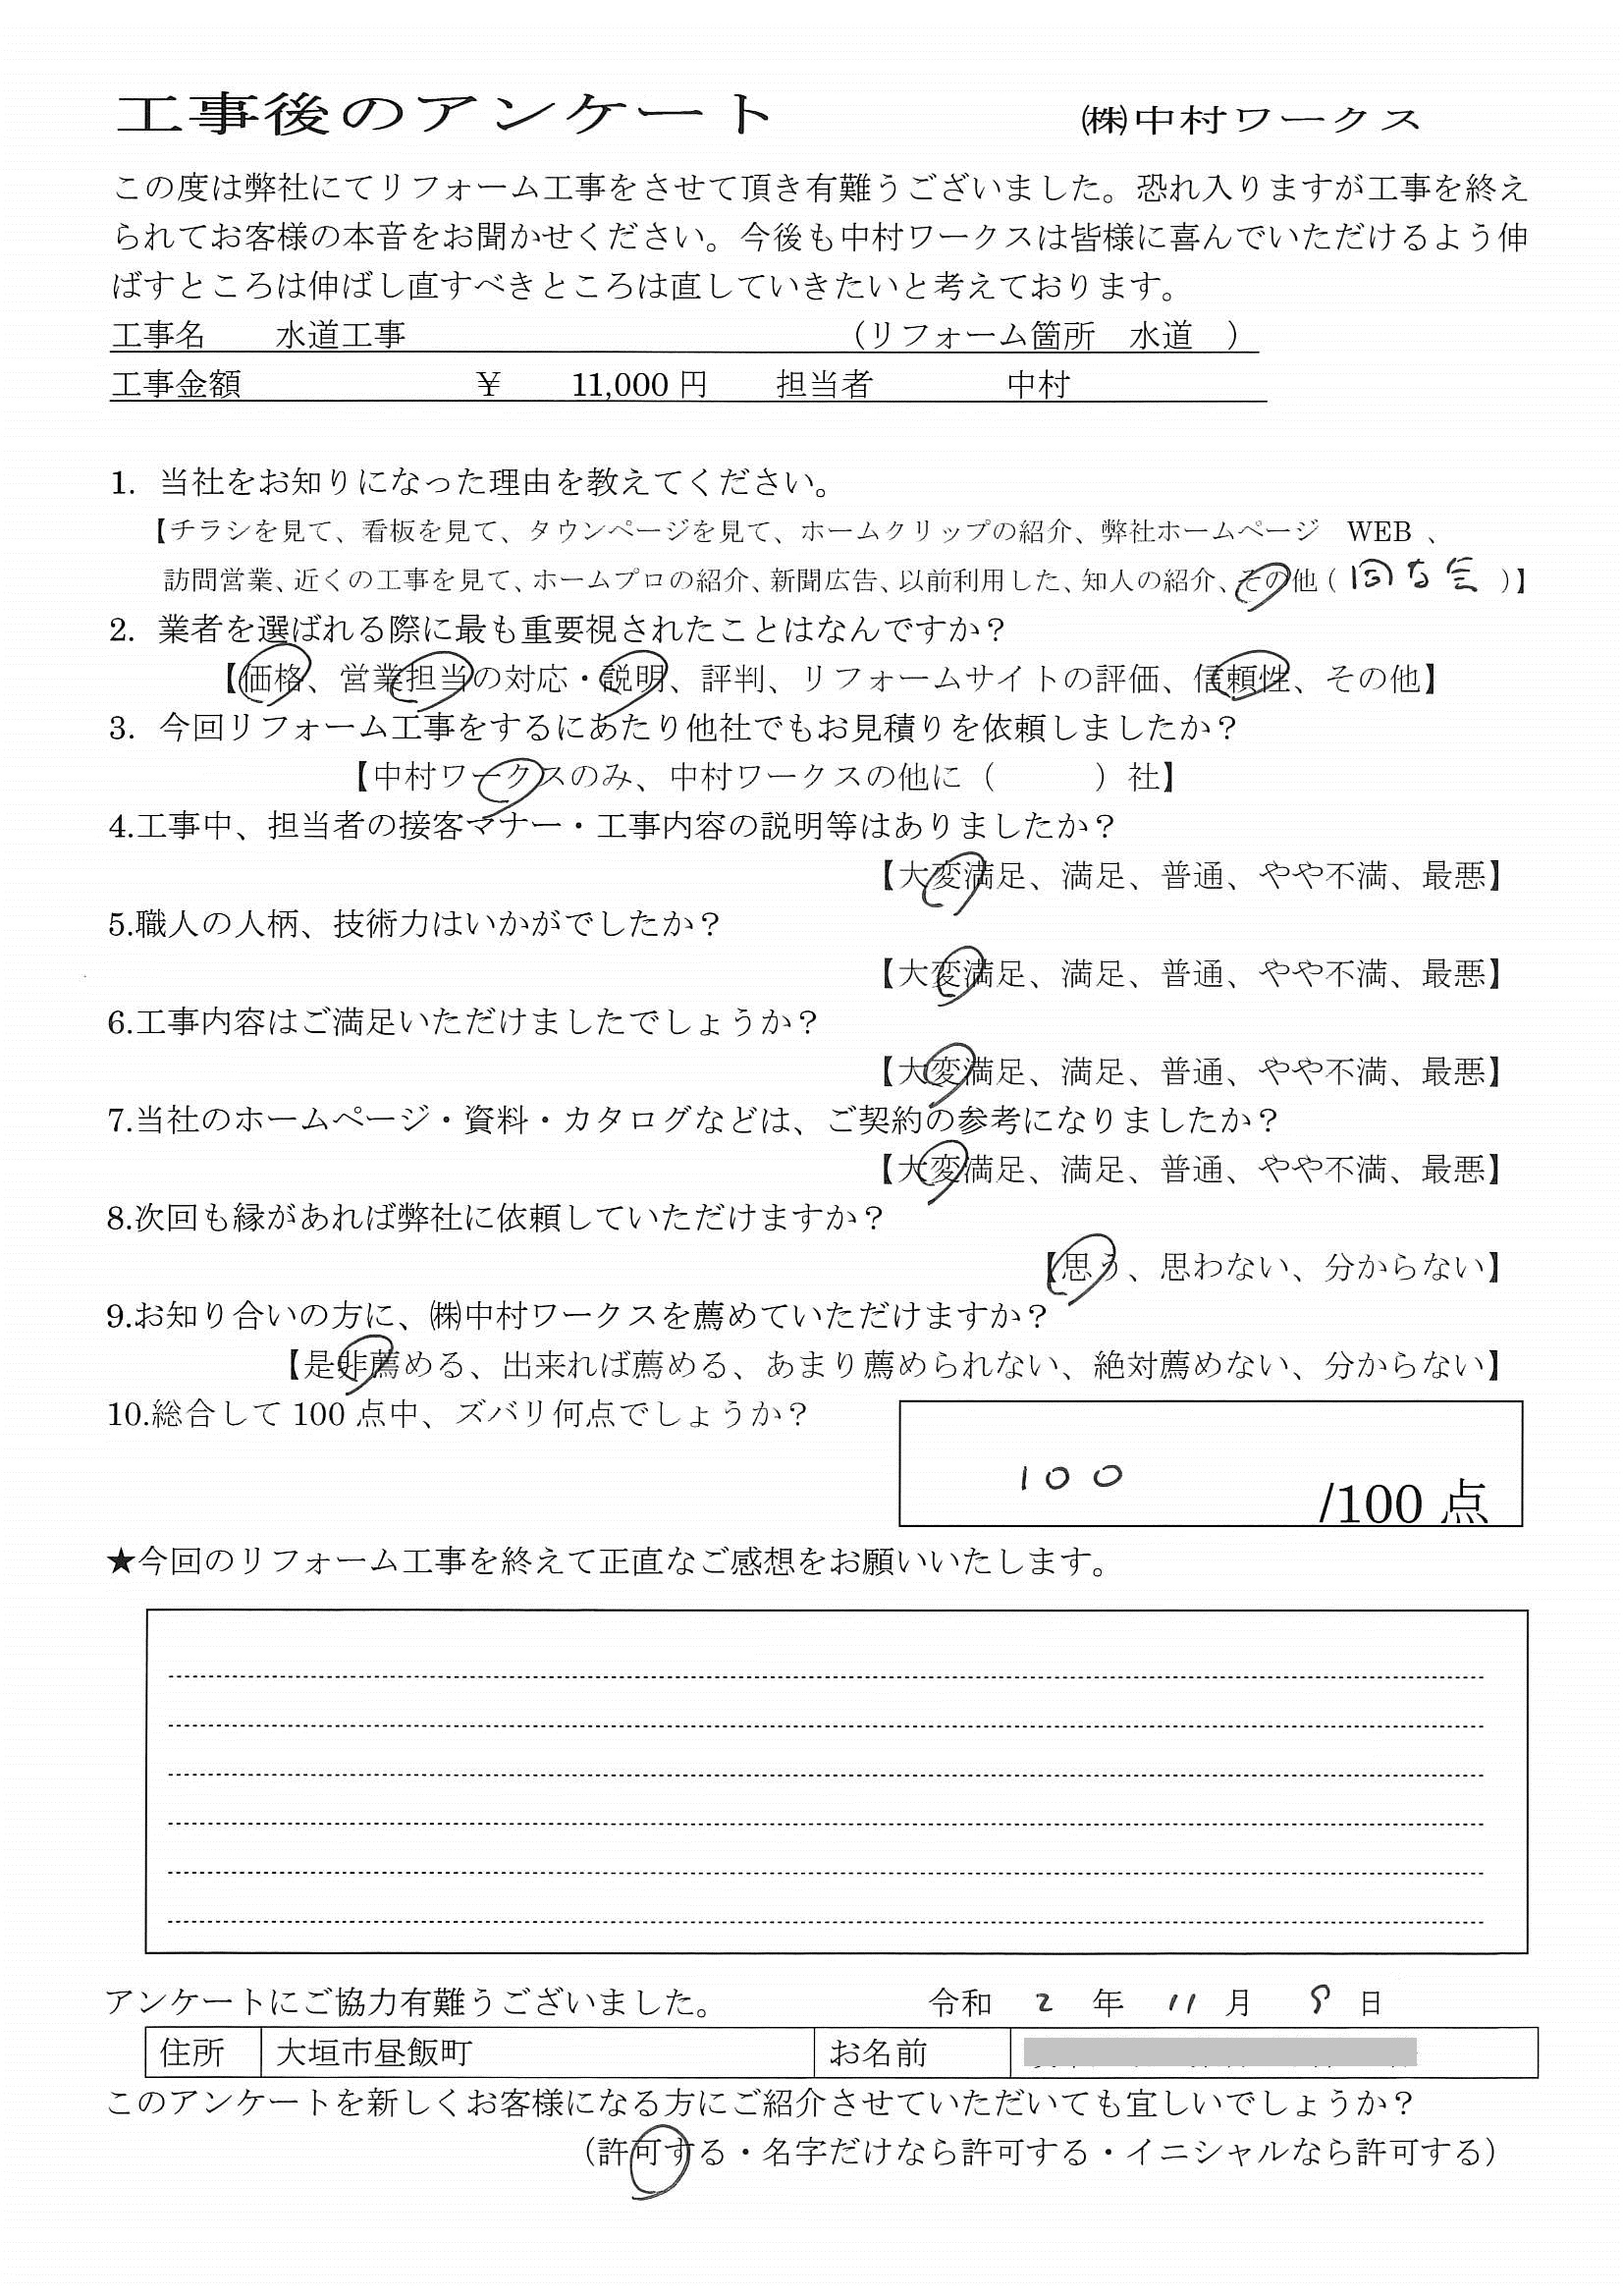 工事後のアンケート ㈱中村ワークス
この度は弊社にてリフォーム工事をさせて頂き有難うございました。恐れ入りますが工事を終え
られてお客様の本音をお聞かせください。今後も中村ワークスは皆様に喜んでいただけるよう伸
ばすところは伸ばし直すべきところは直していきたいと考えております。
工事名 水道工事 （リフォーム箇所 水道 ）
工事金額 ￥ 11,000 円 担当者 中村
1. 当社をお知りになった理由を教えてください。
【チラシを見て、看板を見て、タウンページを見て、ホームクリップの紹介、弊社ホームページ WEB 、
訪問営業、近くの工事を見て、ホームプロの紹介、新聞広告、以前利用した、知人の紹介、その他（ )】
2. 業者を選ばれる際に最も重要視されたことはなんですか？
【価格、営業担当の対応・説明、評判、リフォームサイトの評価、信頼性、その他】
3. 今回リフォーム工事をするにあたり他社でもお見積りを依頼しましたか？
【中村ワークスのみ、中村ワークスの他に（ ）社】
4.工事中、担当者の接客マナー・工事内容の説明等はありましたか？
【大変満足、満足、普通、やや不満、最悪】
5.職人の人柄、技術力はいかがでしたか？
【大変満足、満足、普通、やや不満、最悪】
6.工事内容はご満足いただけましたでしょうか？
【大変満足、満足、普通、やや不満、最悪】
7.当社のホームページ・資料・カタログなどは、ご契約の参考になりましたか？
【大変満足、満足、普通、やや不満、最悪】
8.次回も縁があれば弊社に依頼していただけますか？
【思う、思わない、分からない】
9.お知り合いの方に、㈱中村ワークスを薦めていただけますか？
【是非薦める、出来れば薦める、あまり薦められない、絶対薦めない、分からない】
10.総合して 100 点中、ズバリ何点でしょうか？
100 /100 点
★今回のリフォーム工事を終えて正直なご感想をお願いいたします。
アンケートにご協力有難うございました。 令和 2 年 11 月 日
住所 大垣市昼飯町 お名前
このアンケートを新しくお客様になる方にご紹介させていただいても宜しいでしょうか？
（許可する・名字だけなら許可する・イニシャルなら許可する）